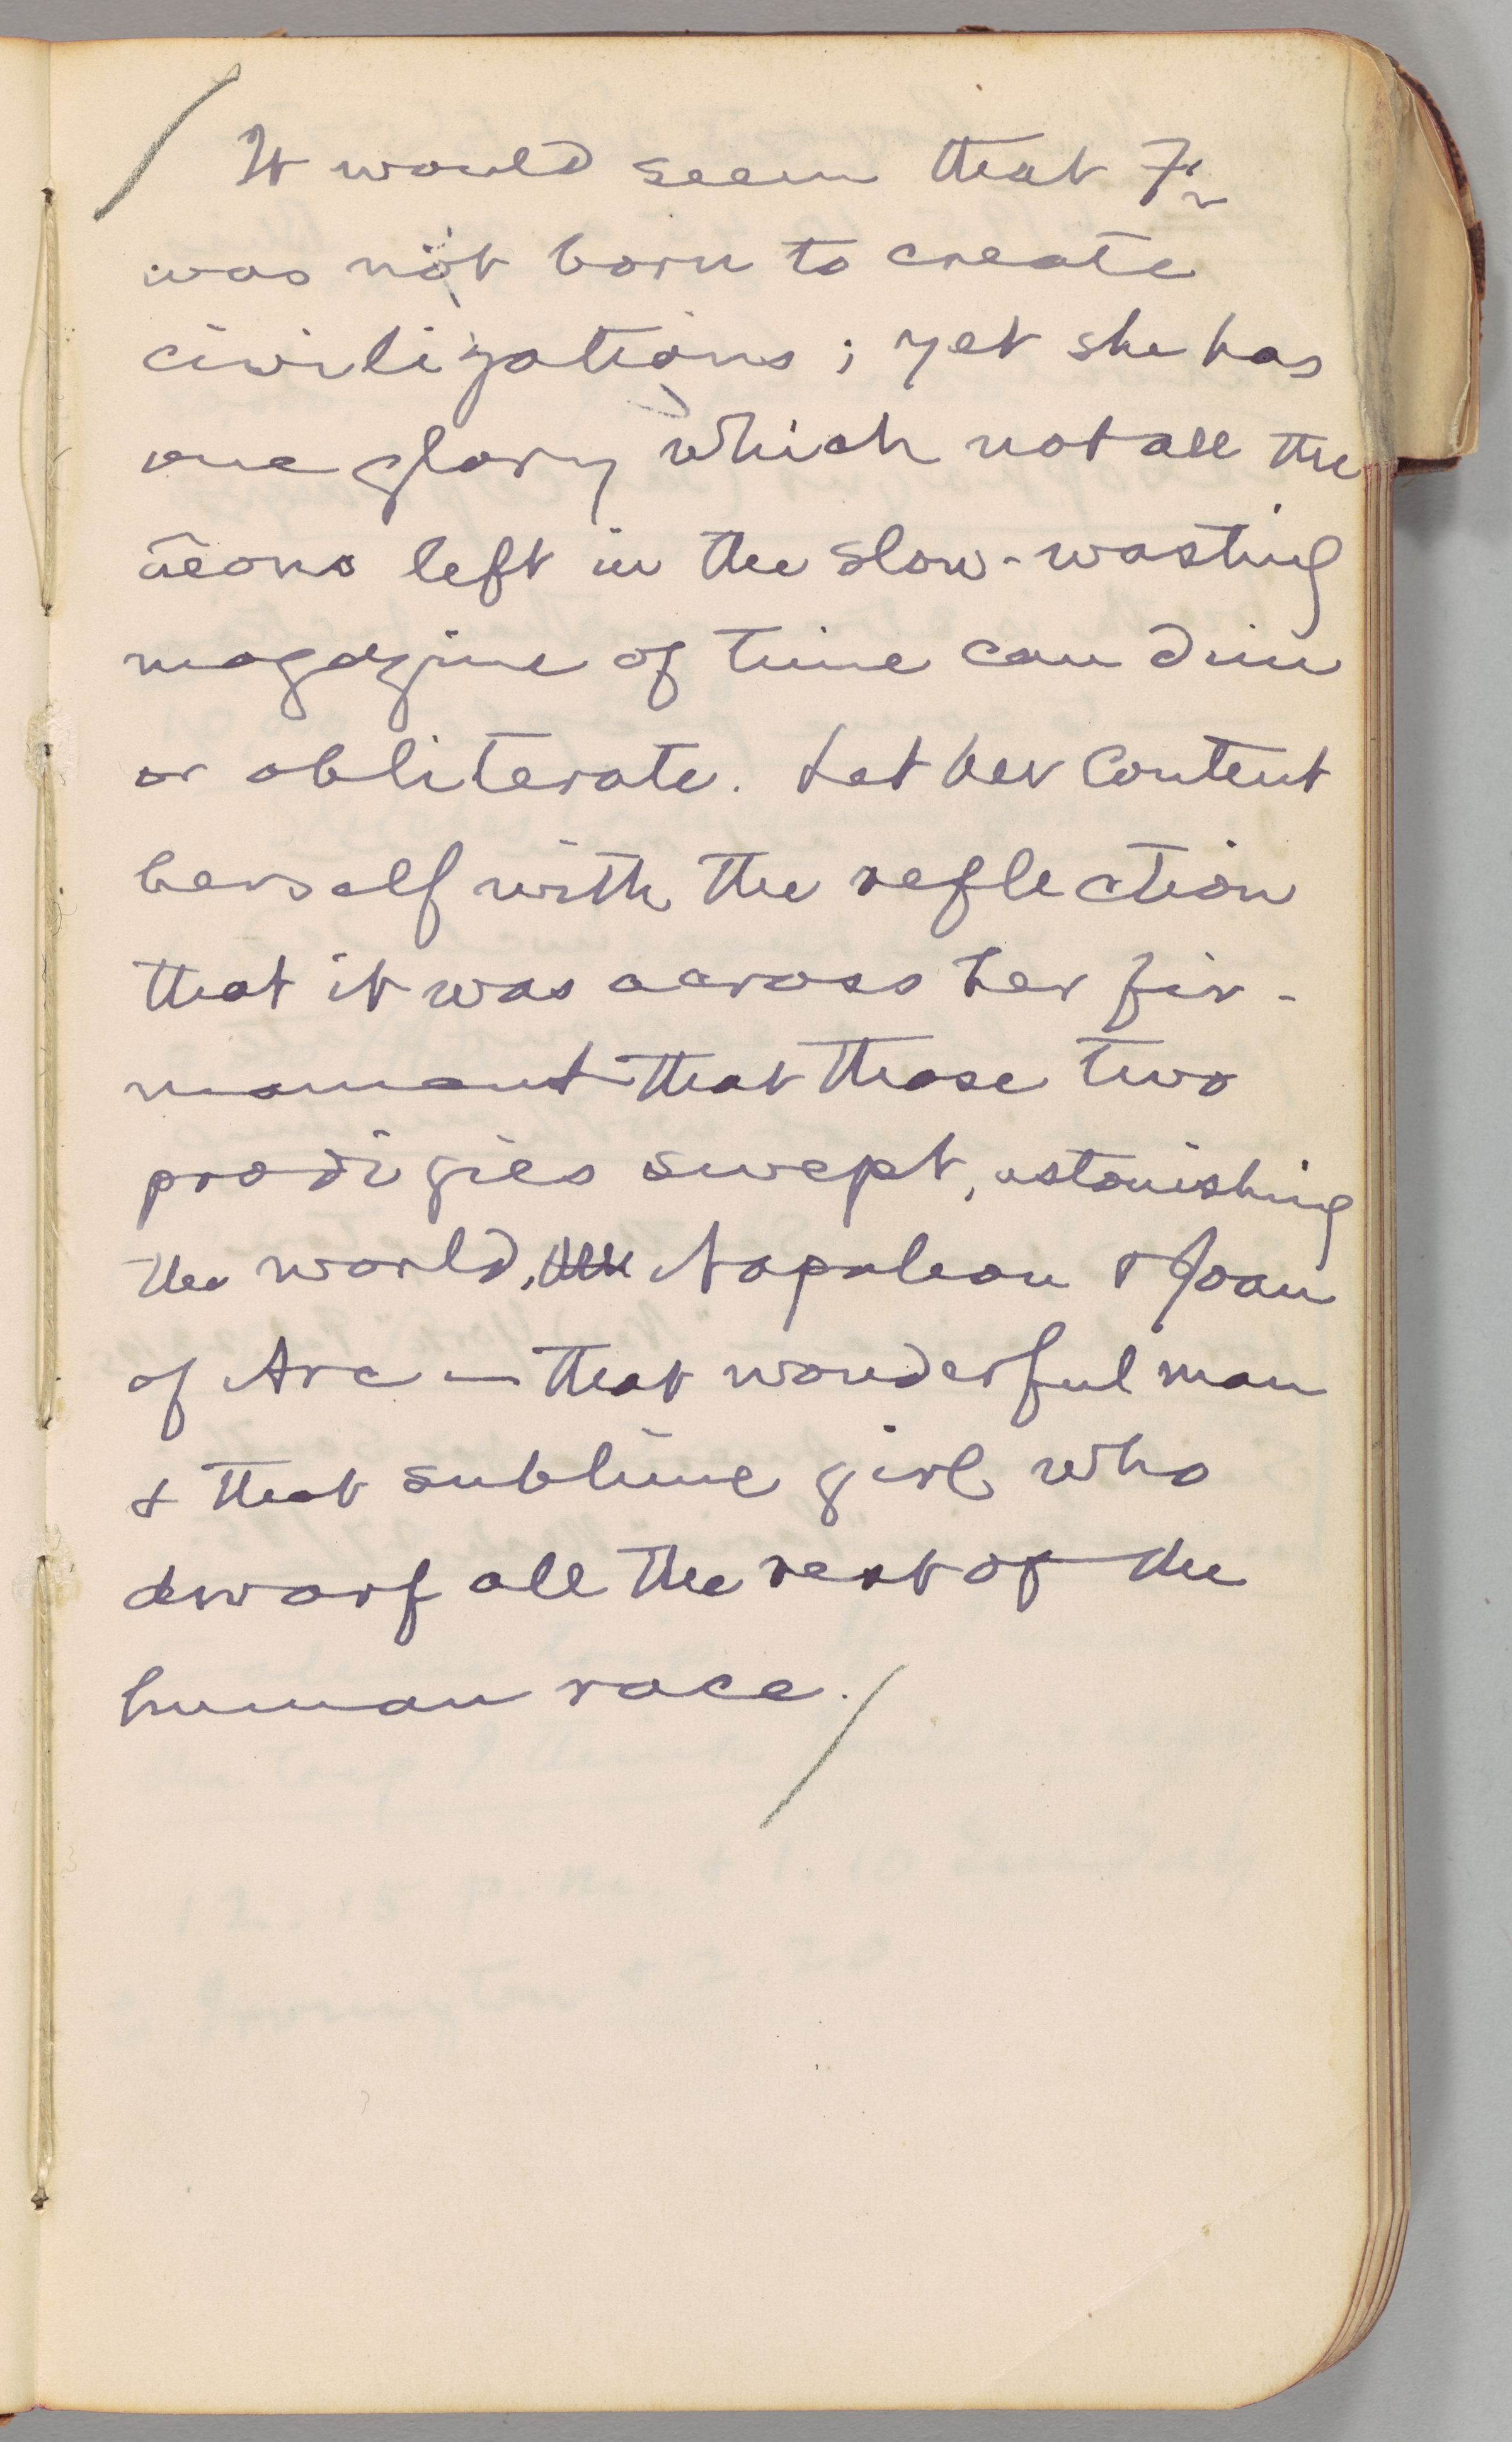 It would seem that Fr
was not born to create
civilizations; yet she has
one glory which not all the
aeons left in the slow-wasting
magazine of time can dim
or obliterate. Let her content
herself with the reflection
that it was across her fir-
mament that those two
prodigies swept, astonishing
the world, Napoleon & Joan
of Arc — that wonderful man
& that sublime girl who
dwarf all the rest of the
human race.